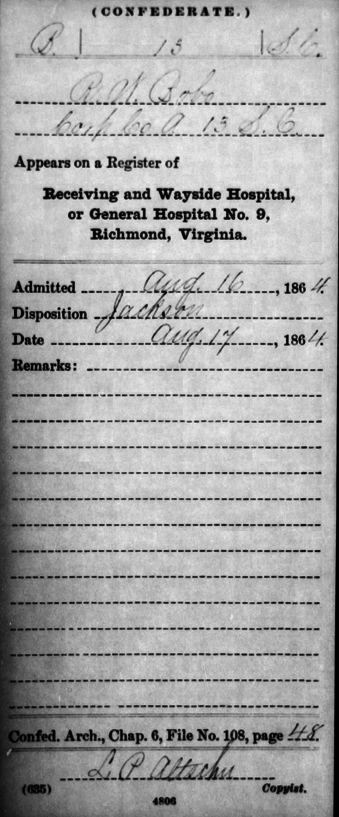 (CONFEDERATE.)
B. | 13 | S.C.
R. W. Bobo
Corp Co A 13 S.C.
Appears on a Register of
Receiving and Wayside Hospital,
or General Hospital No. 9,
Richmond, Virginia.
Admitted Aug. 16, 1864.
Disposition Jackson
Date Aug. 17, 1864.
Remarks:
Confed. Arch., Chap. 6, File No. 108, page 48
L. P.
(635) Copyist.
4806